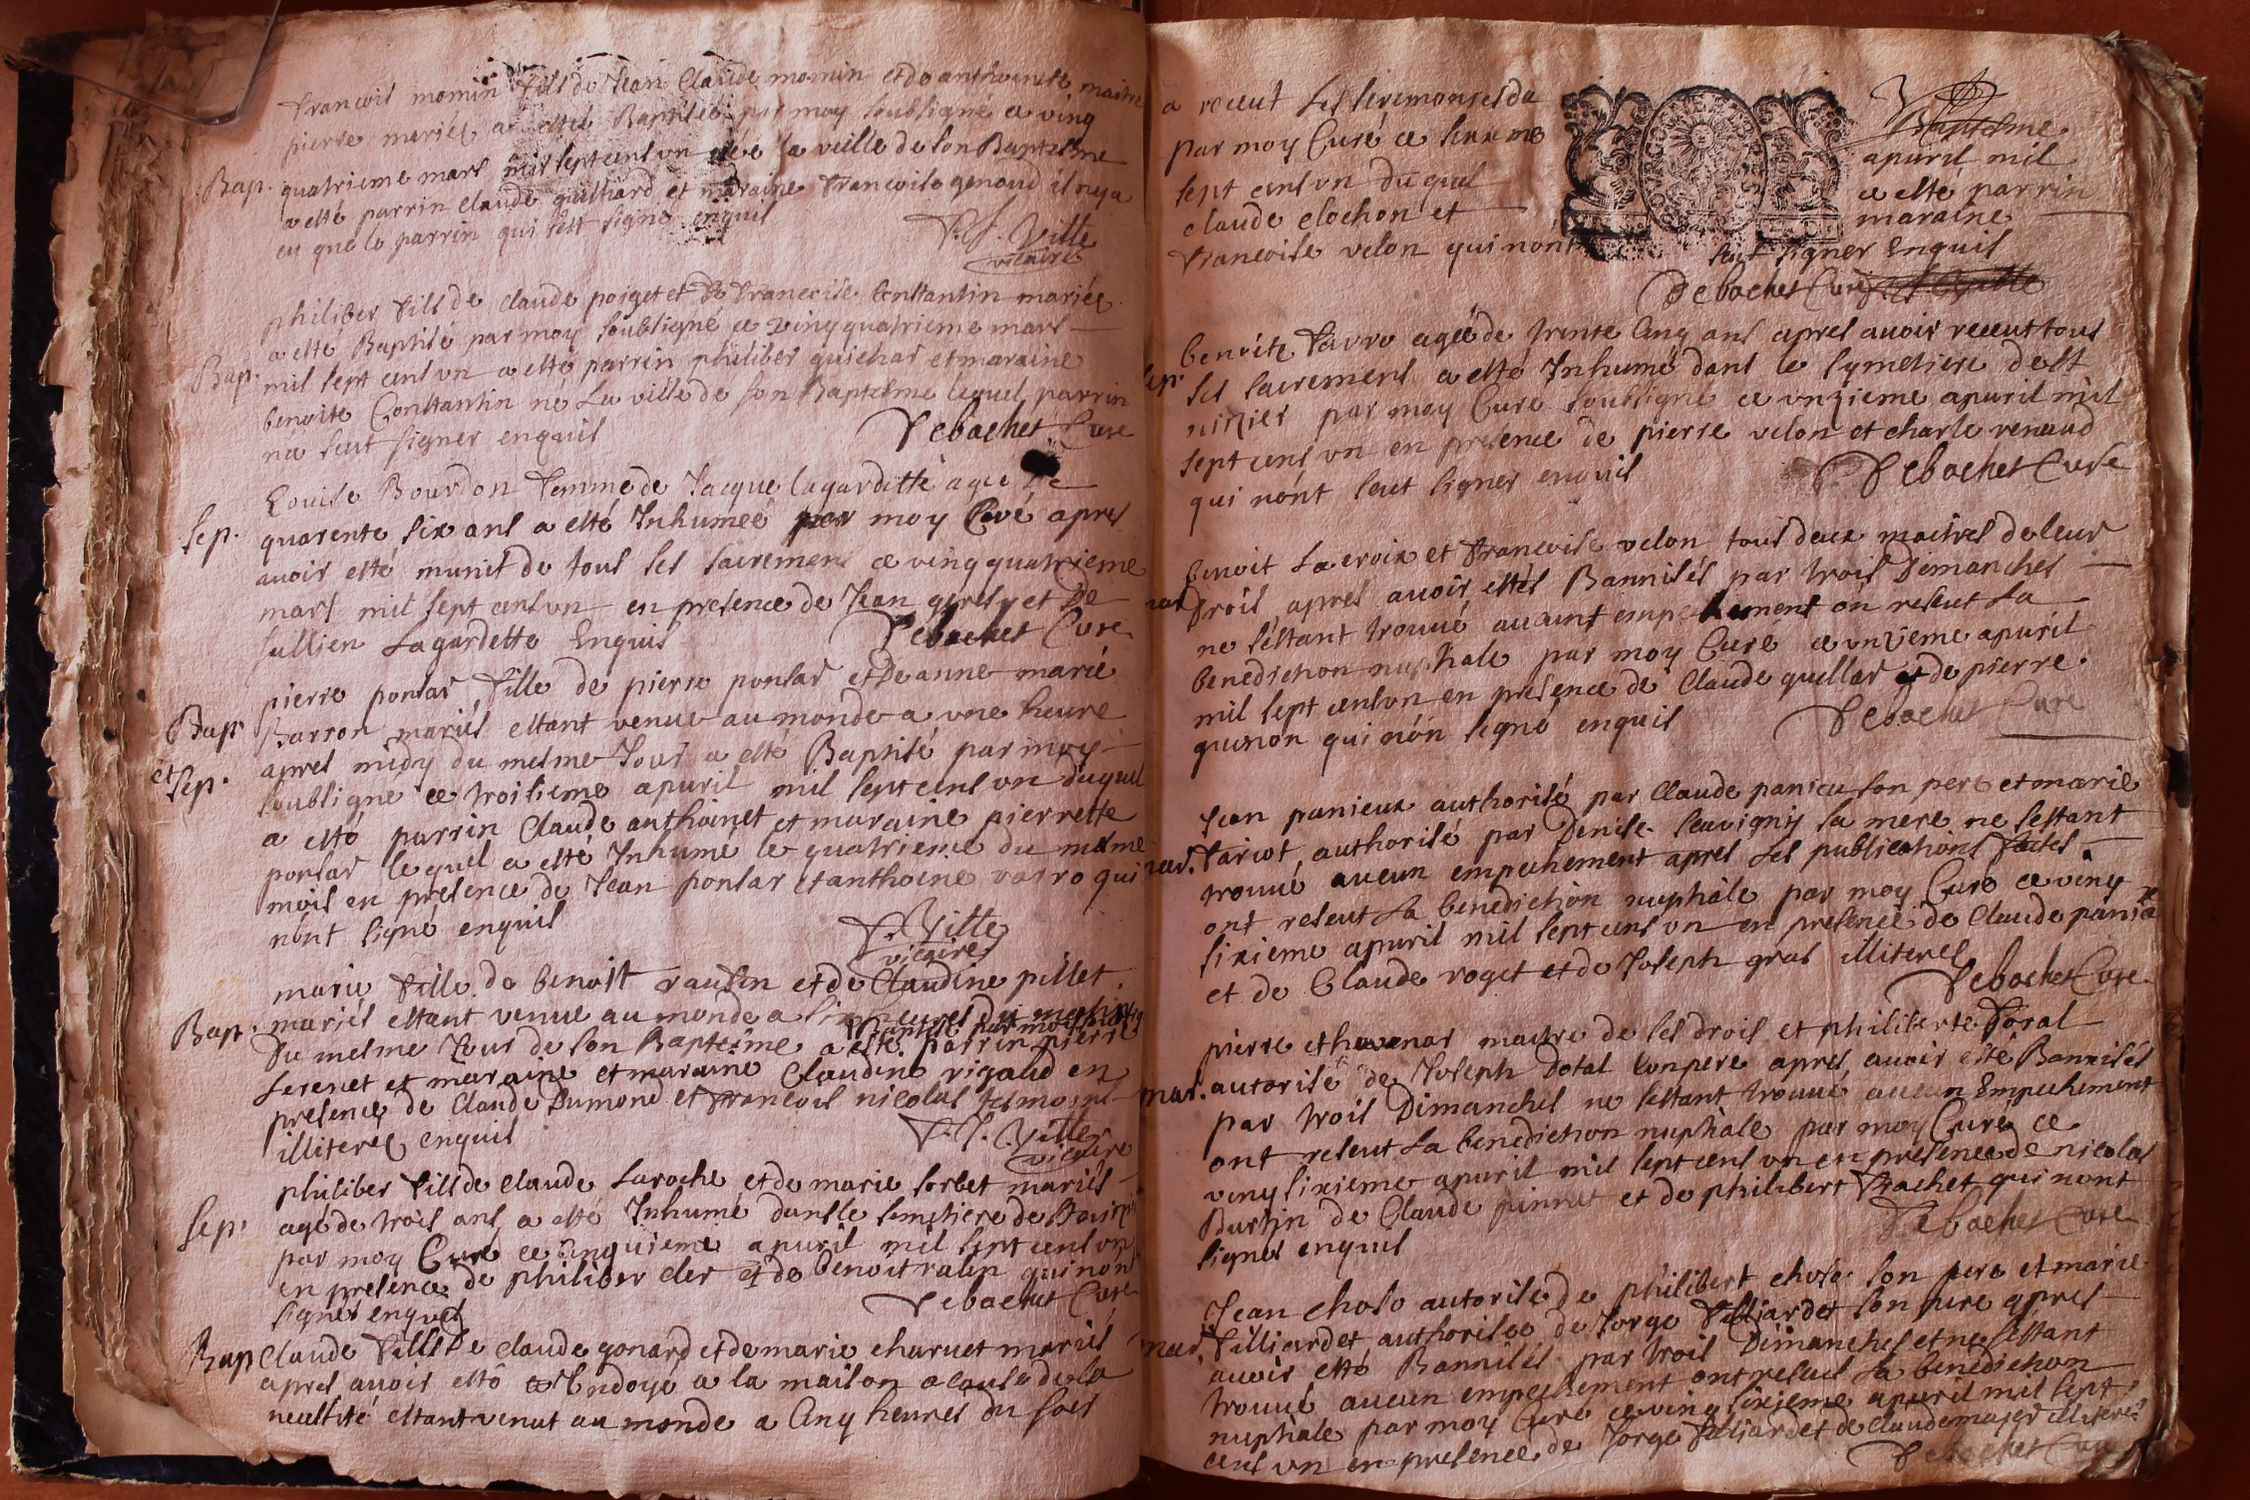 francois momin fils de Jean Claude momin et de anthoinette maitre
pierre mariés a esté Baptisé par moy soubsigné ce ving
Bap. quatrieme mars mil sept cens un née la veille de son Baptesme
a esté parrin claude guilhard et maraine francoise genoud il ny a
eu que le parrin qui sest signé enquil
Ville
vicaire
philiber fils de claude poiget et de francoise Constantin mariés
a esté Baptisé par moy soubsigné ce vingquatrieme mars
Bap. mil sept cens un a esté parrin philiber guichar et maraine
benoite Constantin né La veille de son Baptesme lequel parrin
na seut signer enquil
Debachet Curé
Louise Bourdon femme de Jacque lagardette agée de
Sep. quarente six ans a esté Inhumée par moy Curé apres
avoir esté munit de tous les sacremens ce vingquatrieme
mars mil sept cens un en presence de Jean et De
Jullien Lagardette Enquis
Debachet Curé
pierre ponsar fille de pierre ponsar et De anne marie
Bap. Barron mariés estant venue au monde a une heure
et Sep. apres midy du mesme Jour a esté Baptisé par moy
soubsigné ce troisieme apuril mil sept cens un duquel
a esté parrin Claude anthoinet et maraine pierrette
ponsar lequel a esté Inhumé le quatrieme du mesme
mois en presence de Jean ponsar et anthoine varro qui
nont signé enquil
Ville
vicaire
marie fille de benoist raufin et de Claudine pillet
Bap. mariés estant venue au monde a six heures du matin
Baptisé par moy
Du mesme Jour de son Baptesme a esté parrin pierre
Serenet et maraine et maraine Claudine rigaud en
presence de Claude Dumond et francois nicolas tesmoins
illiteres enquil
Ville
vicaire
philiber fils de claude Laroche et de marie sorbet mariés
Sep. agé de trois ans a esté Inhumé dans le semetiere de
par moy Curé ce cinquieme apuril mil sept cens un
en presence de philiber cler et de benoit ralin qui nont
signer enquel
Debachet Curé
Bap Claude fils De claude gonard et de marie charuet mariés
apres avoir esté Endoyé a la maison a cause de la
necessité estant venut au monde a Cinq heures du soir
a receut Les siremonies du Baptesme
par moy Curé ce sixieme apuril mil
sept cens un duquel a esté parrin
claude clochon et maraine
francoise velon qui nont seut signer Enquil
Debachet Curé
Sep. benoite favre agée de trente Cinq ans apres avoir receut tous
les sacremens a esté Inhumé dans le symetiere de st
nizier par moy Curé soubsigné ce unzieme apuril mil
sept cens un en presence de pierre velon et charle renaud
qui nont seut signer enquil
Debachet Curé
benoit Lacroix et francoise velon tous deux maitres de leur
mar. Drois apres avoir estés Bannisés par trois Dimanches
ne sestant trouvé aucunt empechement on reseut La
benediction nuphiale par moy Curé ce unzieme apuril
mil sept cens un en presence de Claude guillar et de pierre
guenon qui nôn signé enquil
Debachet Curé
Jean panieux authorisé par Claude panieu son pere et marie
mar. fariot, authorisé par Denise Savigny sa mere ne sestant
trouvé aucun empechement apres Les publications faites
ont reseut La benediction nuphiale par moy Curé ce ving
sixieme apuril mil sept cens un en presence de Claude panieu
et de Claude roget et de Joseph gras illiteres
Debachet Curé
pierre ethevenar maitre de ses drois et philiberte Doral
mar. autorisé de Joseph Dotal son pere apres avoir esté Bannisés
par trois Dimanches ne sestant trouvé aucun Empechement
ont reseut La benediction nuphiale par moy Curé ce
ving sixieme apuril mil sept cens un en presence de nicolas
Burtin de Claude pinnet et de philibert frachet qui nont
signer enquil
Debachet Curé
Jean choso autorisé de philibert choso son pere et marie
mar. filliardet authorisée de Jorge filliardet son pere apres
avoir esté Bannisés par trois Dimanches et ne sestant
trouvé aucun empechement ont reseut La benediction
nuphiale par moy Curé ce ving sixieme apuril mil sept
cens un en presence de Jorge filiardet et de claude majer illiteres
Debachet Curé